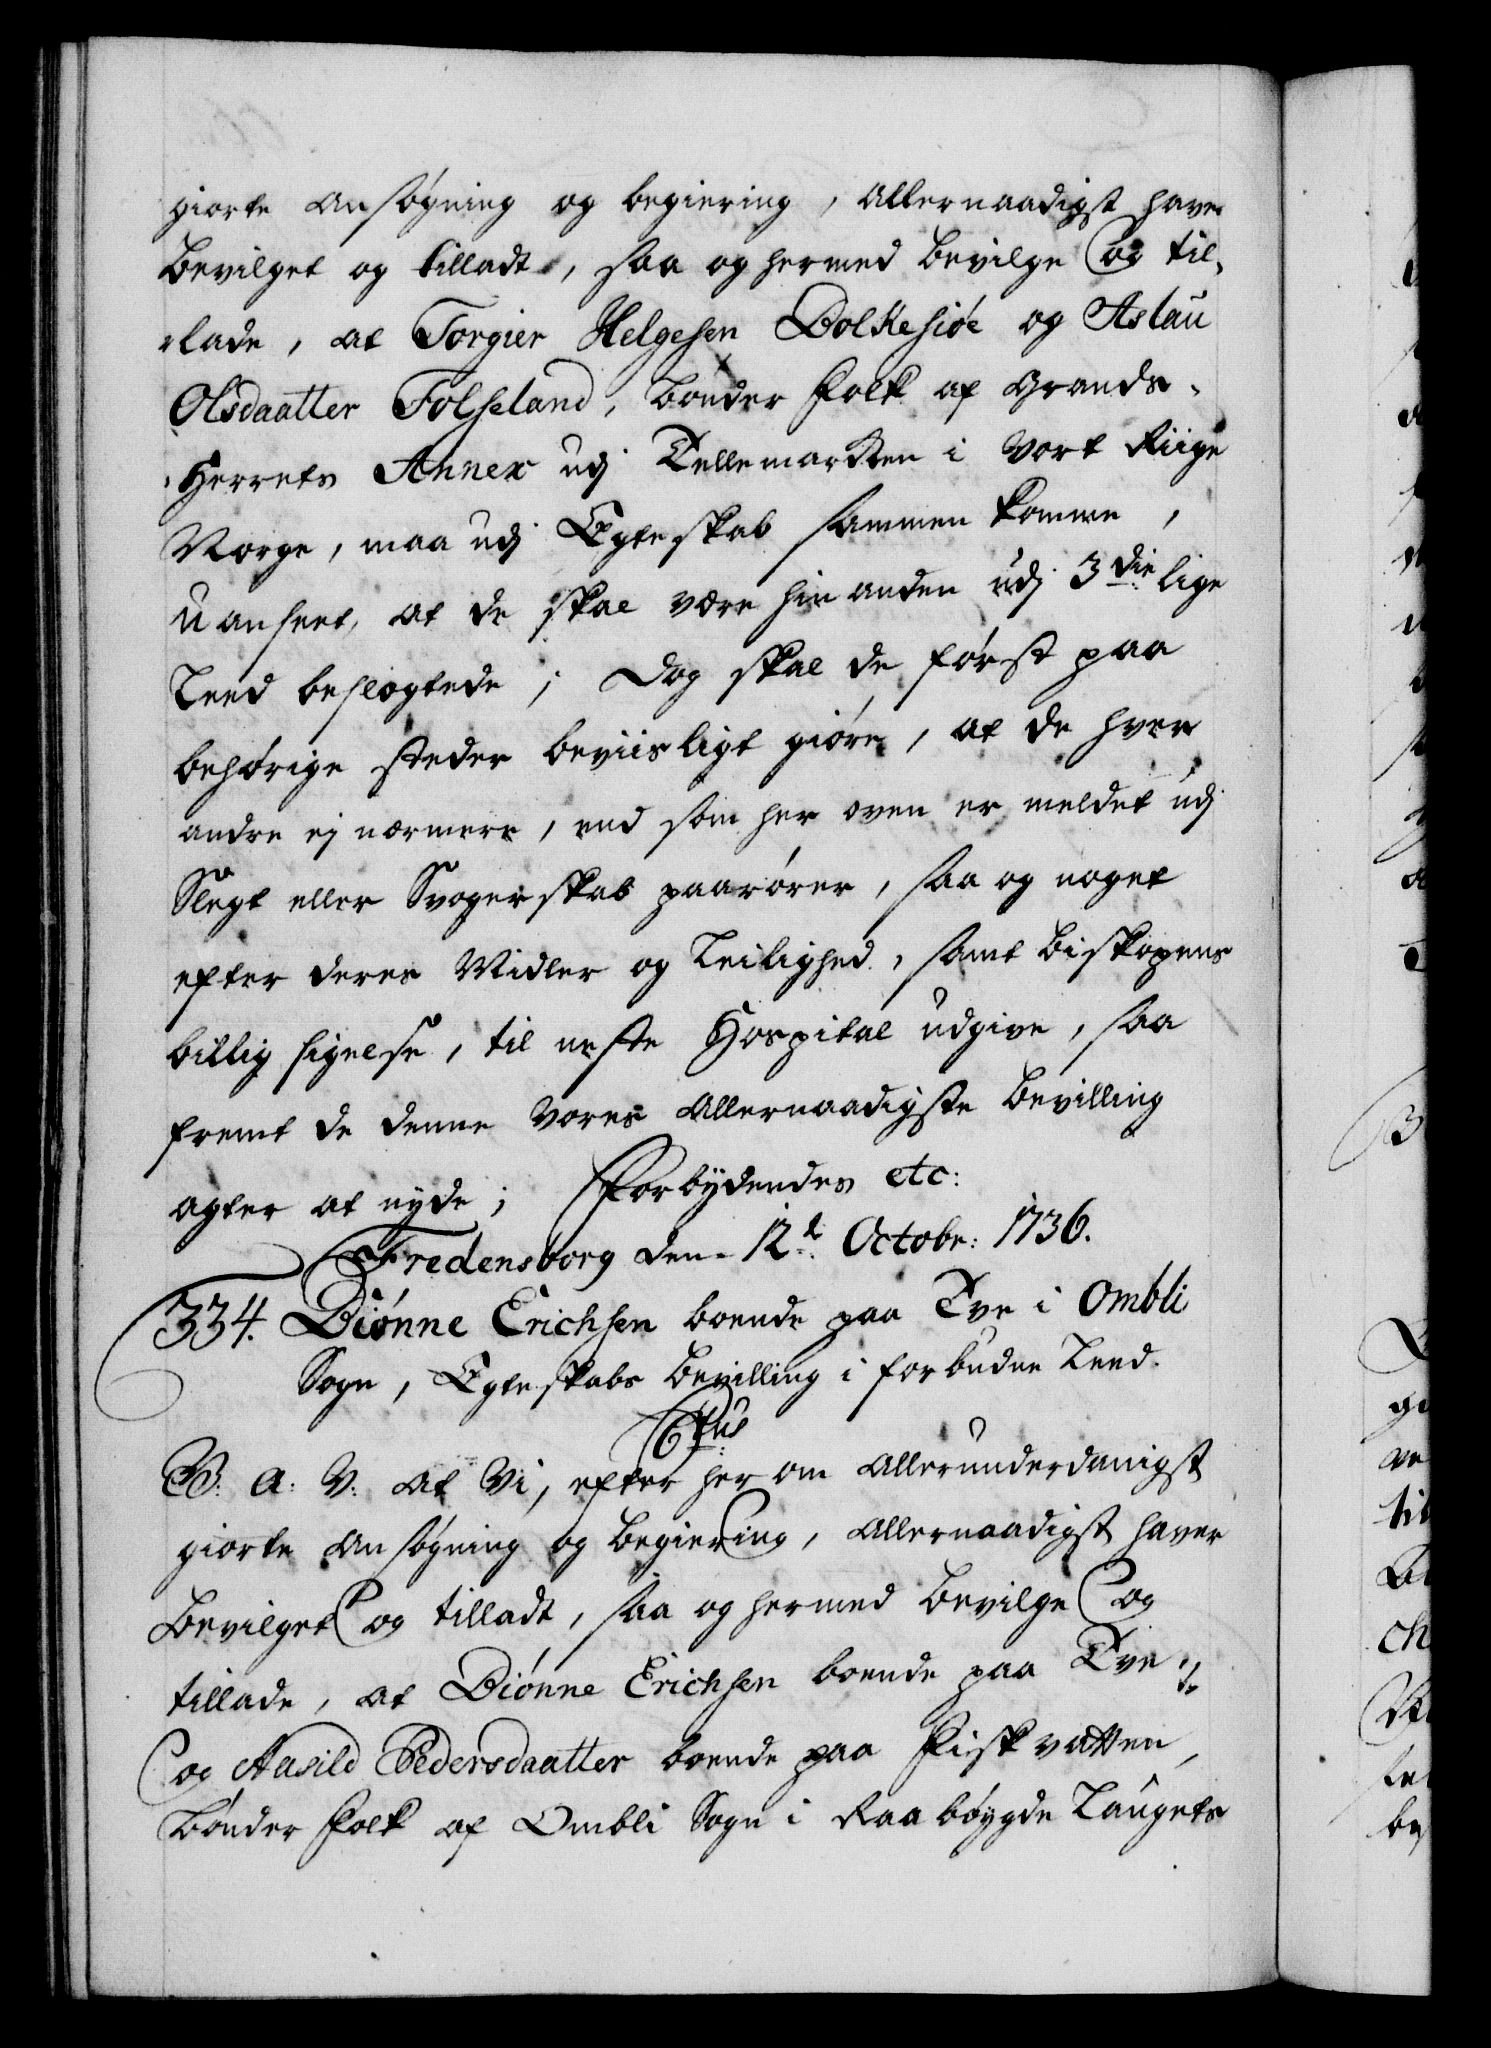 giorte Ansøgning og begiering, Allernaadigst have
bevilget og tilladt, saa og hermed bevilge og til-
lade, at Torgier Helgesen Bolkesiøe og Aslau
Olsdaatter Folseland, bønder Folk af Grands-
Herrets Annex udj Tellemarken i Vort Riige
Norge, maa udj Egteskab sammen komme,
uanseet, at de skal være hinanden udj 3die lige
Leed beslægtede; Dog skal de først paa
behørige steder beviisligt giøre, at de hver
andre ej nærmere, end som her oven er meldet udj
Slegt eller Svogerskab paarører, saa og noget
efter deres Midler og Leilighed, samt biskopens
billig sigelse, til neste Hospital udgive, saa
fremt de denne Vores Allernaadigste bevilling
agter at nyde; Forbydendes etc:
Fredensborg den 12te Octobr: 1736.
334. Biønne Erichsen boende paa Tve i Ombli
Sogn, Egteskabs bevilling i forbudne Leed.
C6tus
G: A: V: at Vi, efter herom Allerunderdanigst
giorte Ansøgning og begiering, Allernaadigst haver
bevilget og tilladt, saa og hermed bevilge og
tillade, at Biønne Erichsen boende paa Tve-
de
og Aasild Pedersdaatter boende paa Fiskvatten,
bønder Folk af Ombli Sogn i Raabøygde Laugets